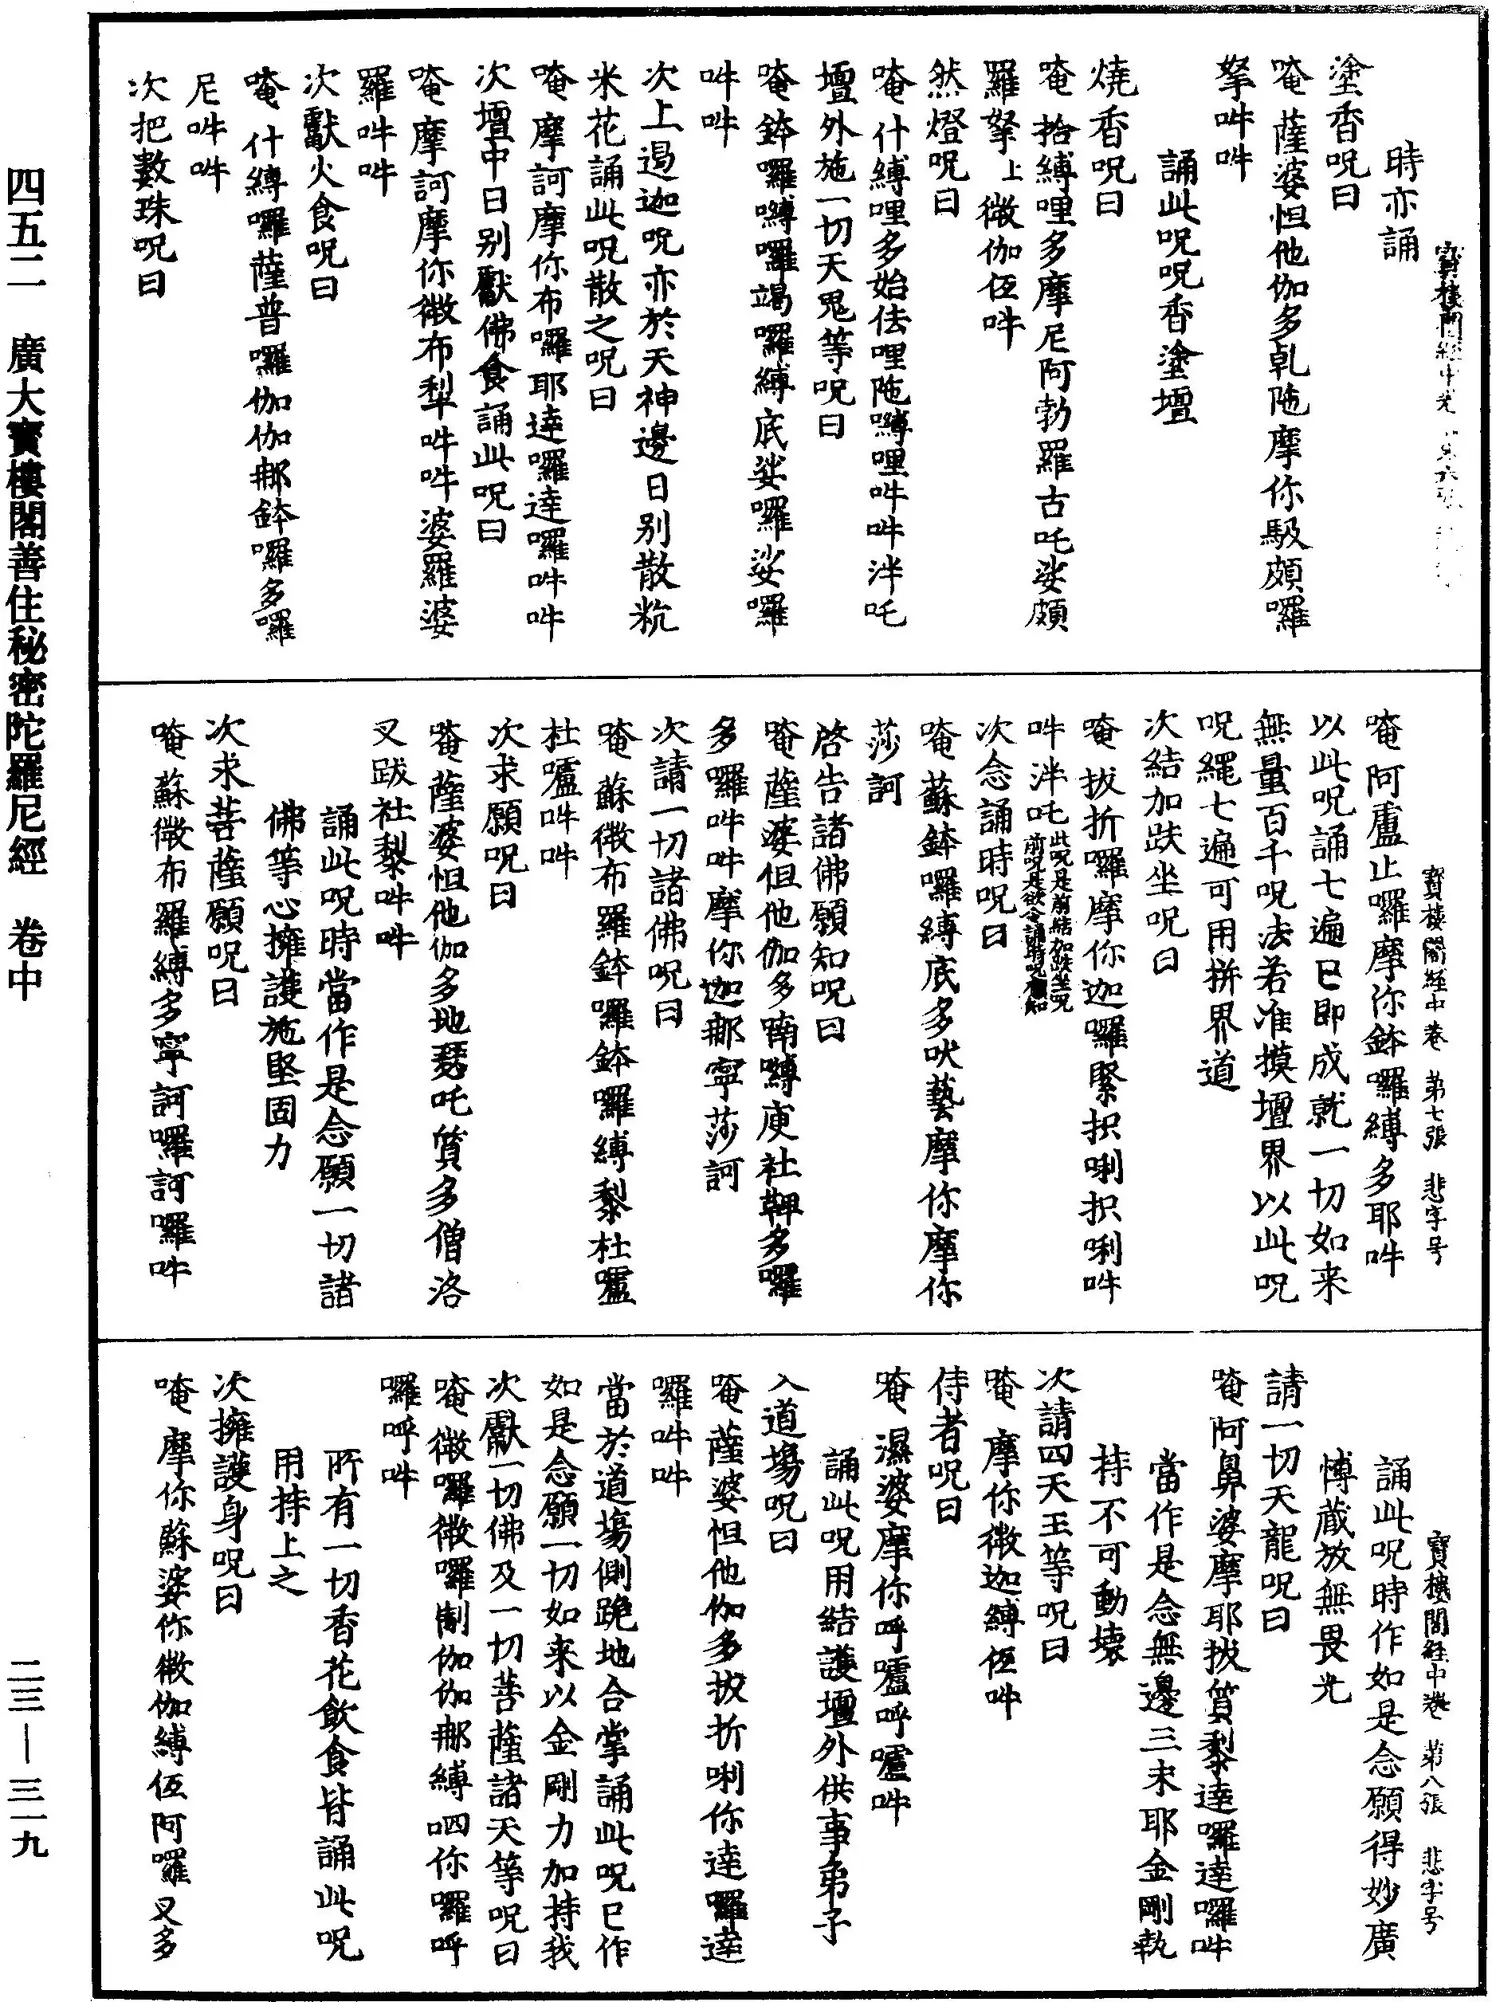 時亦誦
塗香呪曰
唵薩婆怛他伽多乹陁摩你馺頗囉
拏吽吽
誦此呪呪香塗壇
燒香呪曰
唵拾縛哩多摩尼阿勃羅古吒娑頗
羅拏上微伽伍吽
然燈呪曰
唵什縛哩多始佉哩陁嚩哩吽吽泮吒
壇外施一切天鬼等呪曰
唵鉢囉嚩囉竭囉縛底娑囉娑囉
吽吽
次上遏迦呪亦於天神邊日別散粇
米花誦此呪散之呪曰
唵摩訶摩你布囉耶達囉達囉吽吽
次壇中日別獻佛食誦此呪曰
唵摩訶摩你微布犁吽吽婆羅婆
羅吽吽
次獻火食呪曰
唵什縛囉薩普囉伽伽那鉢囉多囉
尼吽吽
次把數珠呪曰
寶樓閣經中卷 第七張 悲字号
唵阿盧止囉摩你鉢囉縛多耶吽
以此呪誦七遍已即成就一切如来
無量百千呪法若准摸壇界以此呪
呪繩七遍可用拼界道
次結加趺坐呪曰
唵拔折囉摩你迦囉緊抧唎抧唎吽
吽泮吒此呪是前結加趺坐呪前呪是欲念誦時呪須知
次念誦時呪曰
唵蘇鉢囉縛底多吠藝摩你摩你
莎訶
啓告諸佛願知呪曰
唵薩婆但他伽多喃嚩庾社鞞多囉
多囉吽吽摩你迦那寧莎訶
次請一切諸佛呪曰
唵蘇微布羅鉢囉鉢囉縛黎杜嚧
杜嚧吽吽
次求願呪曰
唵薩婆怛他伽多地瑟吒質多僧洛
叉跋社黎吽吽
誦此呪時當作是念願一切諸
佛等心擁護施堅固力
次求菩薩願呪曰
唵蘇微布羅縛多寧訶囉訶囉吽
寶樓閣經中卷 第八張 悲字号
誦此呪時作如是念願得妙廣
博蔵放無畏光
請一切天龍呪曰
唵阿鼻婆摩耶拔質黎達囉達囉吽
當作是念無邊三末耶金剛執
持不可動壊
次請四天王等呪曰
唵摩你微迦縛伍吽
侍者呪曰
唵濕婆摩你呼嚧呼嚧吽
誦此呪用結護壇外供事弟子
入道場呪曰
唵薩婆怛他伽多拔折唎你達囉達
囉吽吽
當於道場側跪地合掌誦此呪已作
如是念願一切如来以金剛力加持我
次獻一切佛及一切菩薩諸天等呪曰
唵微囉微囉制伽伽那縛呬你囉呼
囉呼吽
所有一切香花飲食皆誦此呪
用持上之
次擁護身呪曰
唵摩你蘇婆你微伽縛伍阿囉叉多
四五二 廣大寶樓閣善住秘密陀羅尼經 卷中
二三—三一九